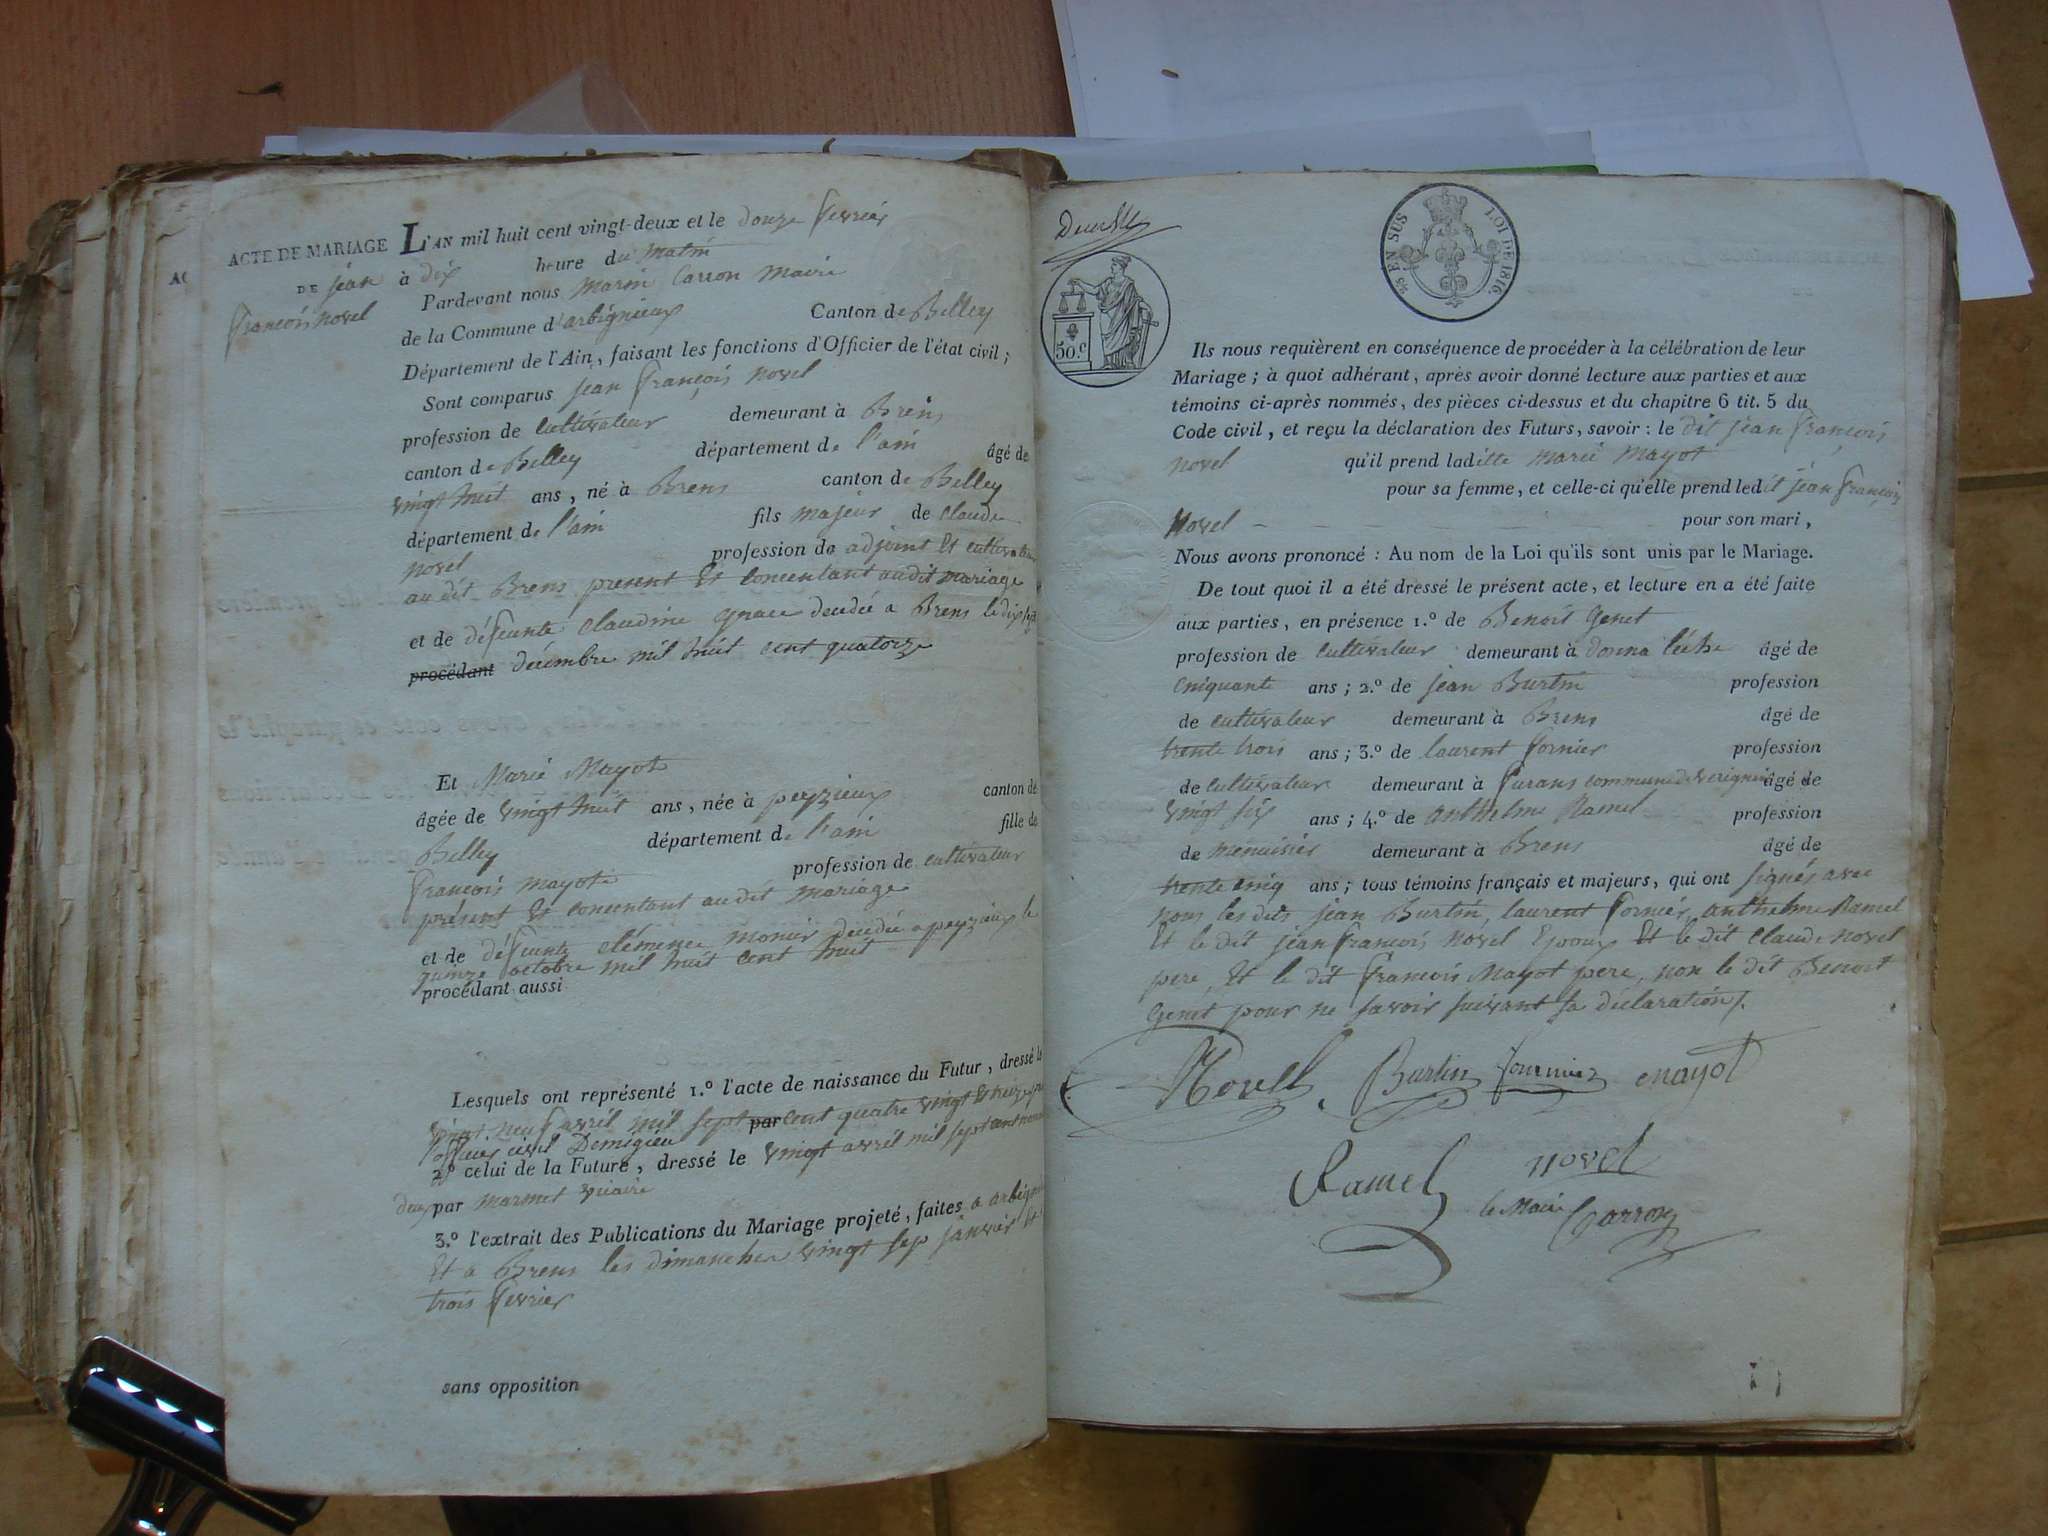 ACTE DE MARIAGE
DE jean
françois novel
L'AN mil huit cent vingt-deux et le douze fevrier
à dix heure du matin
Pardevant nous marin Carron maire
de la Commune d'arbignieux Canton de Belley
Département de l'Ain, faisant les fonctions d'Officier de l'état civil ;
Sont comparus jean françois novel
profession de cultivateur demeurant à Brens
canton de Belley département de l'ain âgé de
vingt huit ans, né à Brens canton de Belley
département de l'ain fils majeur de claude
novel profession de adjoint et cultivateur
au dit Brens present et concentant audit mariage
et de défeunte claudine grace decedée a Brens le dix sept
procédant decembre mil huit cent quatorze
Et Marie Mayot
âgée de vingt huit ans, née à peyzieux canton de
Belley département de l'ain fille de
françois mayot profession de cultivateur
présent et concentant au dit mariage
et de défeunte clémence monier decedée a peyzieux le
quinze octobre mil huit cent huit
procédant aussi
Lesquels ont représenté 1.º l'acte de naissance du Futur, dressé le
vingt neuf avril mil sept cent quatre vingt et treize par
l'officier civil Demigieu
2.º celui de la Future, dressé le vingt avril mil sept cent
par marmet vicaire
3.º l'extrait des Publications du Mariage projeté, faites a
Et a Brens les dimanches vingt sep janvier et
trois fevrier
sans opposition
25 EN SUS LOI DE 1816.
50.c
Ils nous requièrent en conséquence de procéder à la célébration de leur
Mariage ; à quoi adhérant, après avoir donné lecture aux parties et aux
témoins ci-après nommés, des pièces ci-dessus et du chapitre 6 tit. 5 du
Code civil, et reçu la déclaration des Futurs, savoir : le dit jean françois
novel qu'il prend ladite marie mayot
pour sa femme, et celle-ci qu'elle prend ledit jean françois
Novel pour son mari,
Nous avons prononcé : Au nom de la Loi qu'ils sont unis par le Mariage.
De tout quoi il a été dressé le présent acte, et lecture en a été faite
aux parties, en présence 1.º de Benoit Genet
profession de cultivateur demeurant à âgé de
cinquante ans ; 2.º de jean Burtin profession
de cultivateur demeurant à Brens âgé de
trente trois ans ; 3.º de laurent fornier profession
de cultivateur demeurant à furans commune de âgé de
vingt six ans ; 4.º de anthelme Ramel profession
de menuisier demeurant à Brens âgé de
trente cinq ans ; tous témoins français et majeurs, qui ont signés avec
nous les dits jean Burtin, laurent fornier, anthelme Ramel
Et le dit jean françois novel Epoux Et le dit claude novel
pere, Et le dit françois Mayot pere, non le dit Benoit
Genet pour ne savoir suivant sa déclaration.
Novel Burtin fournier mayot
Ramel novel
le Maire Carron